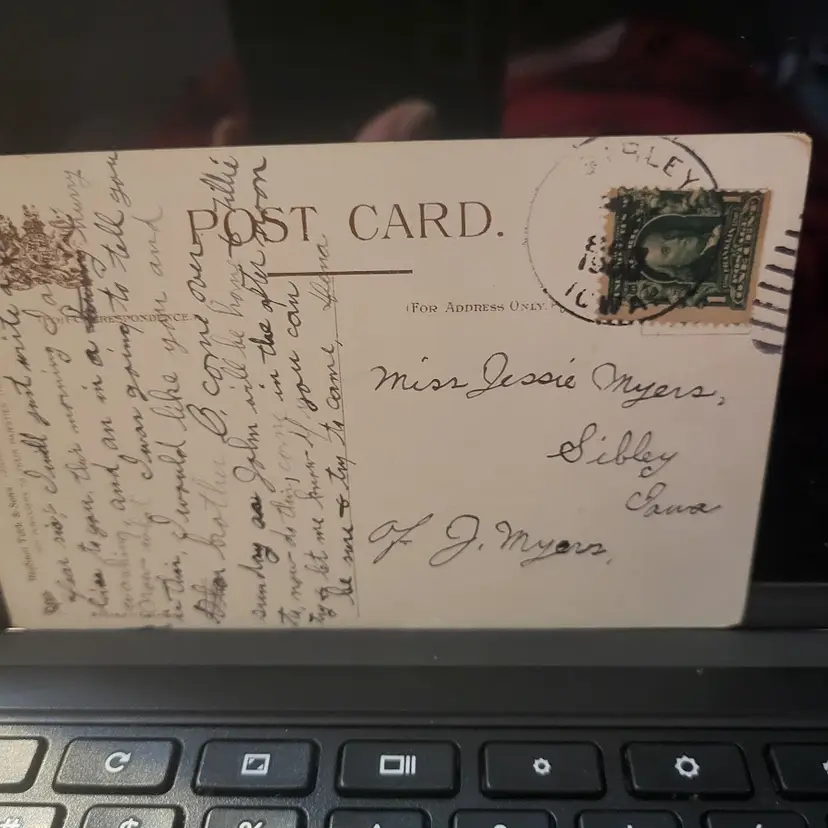 POST CARD.
CORRESPONDENCE
(FOR ADDRESS ONLY.)
SIBLEY
IOWA
1 1
Miss Jessie Myers,
Sibley
Iowa
J. Myers,
Raphael Tuck & Sons
I will just write a
to you, this morning
working and am in a hurry
I was going to tell you
is this, I would like you and
brother B, come over
sunday as John will be home & Tillie
to, now do this, come in the after noon
try & let me know if you can
be sure & try to came,